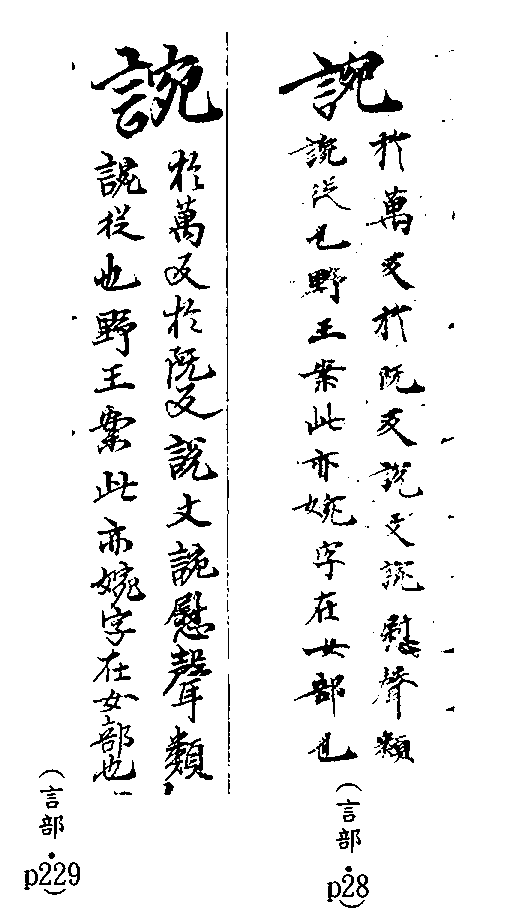 䛷
於萬反於阮反說文䛷慰聲類
䛷從也野王案此亦婉字在女部也
（言部・p28）
䛷
於萬反於阮反說文䛷慰聲類
䛷從也野王案此亦婉字在女部也
（言部・p229）